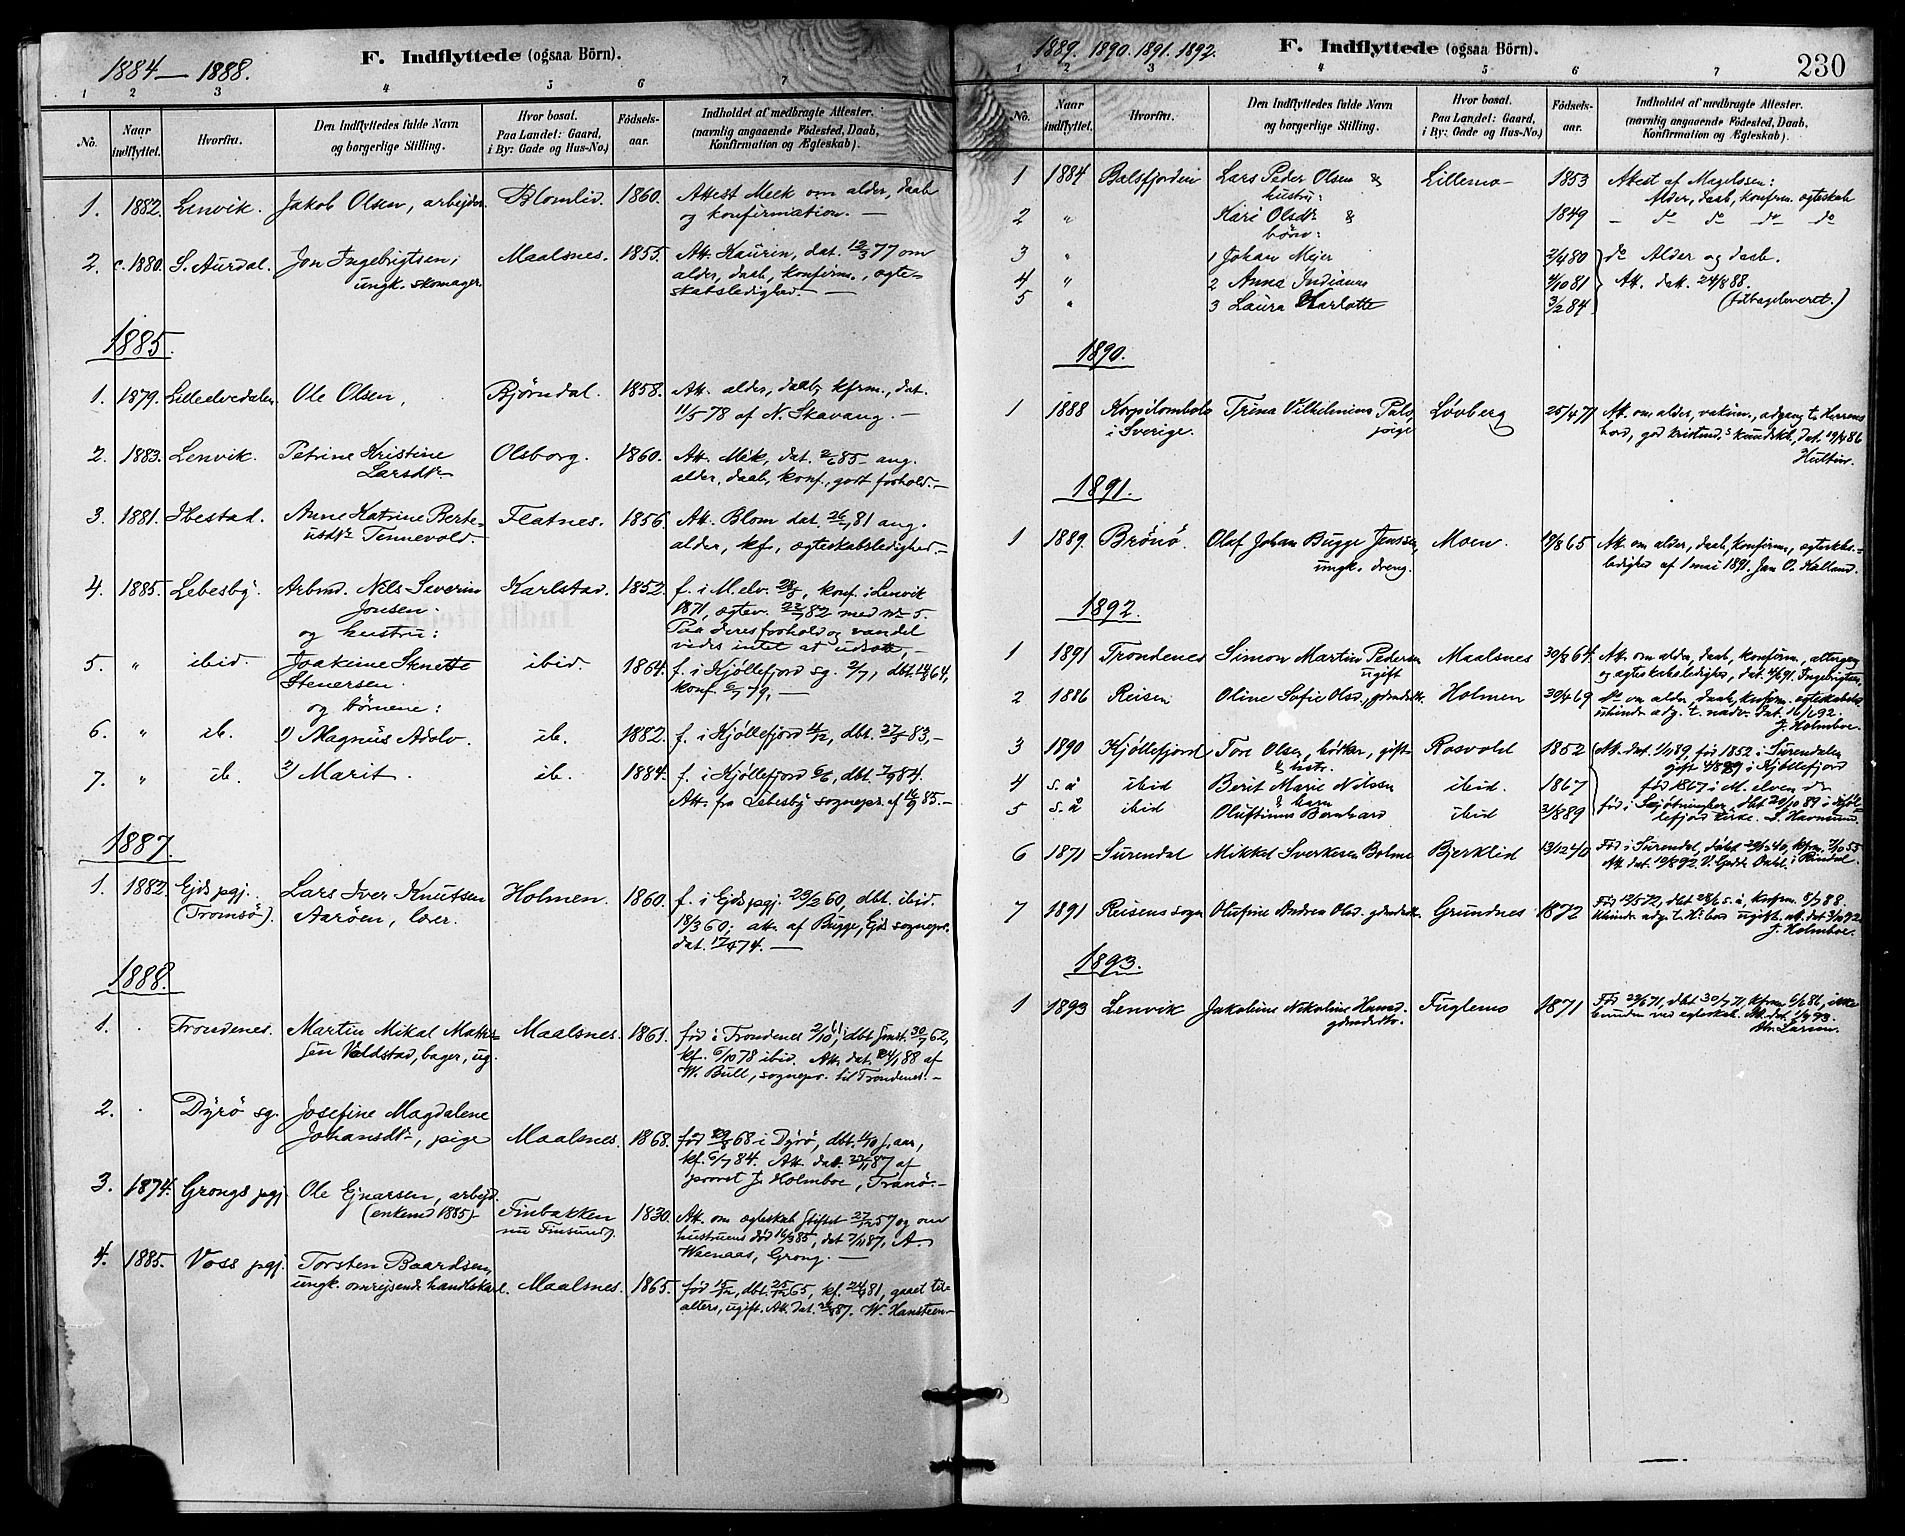 1884 – 1888.
F. Indflyttede (ogsaa Börn).
1 2 3 4 5 6 7
No.
Naar indflyttet.
Hvorfra.
Den Indflyttedes fulde Navn
og borgerlige Stilling.
Hvor bosat.
Paa Landet: Gaard,
i By: Gade og Hus-No.)
Födsels-
aar.
Indholdet af medbragte Attester.
(navnlig angaaende Födested, Daab,
Konfirmation og Ægteskab).
1. 1882. Lenvik. Jakob Olsen, arbejder. Blomlid. 1860. Attest Meek om alder, daab
og konfirmation. —
2. c. 1880. S. Aurdal. Jon Ingebrigtsen, Maalsnes. 1855. Att. Kaurin, dat. 12/3 77 om
ungk. skomager. alder, daab, konfirm., ægte-
skabsledighed. —
1885.
1. 1879. Lilleelvedalen Ole Olsen, Bjørndal. 1858. Att. alder, daab, kfrm., dat.
11/5 78 af N. Skavang. —
2. 1883. Lenvik. Petrine Kristine Olsborg. 1860. Att. Mek, dat. 2/6 85 ang.
Larsdtr. alder, daab, konf., godt forhold. —
3. 1881. Ibestad. Anne Katrine Berte- Flatnes. 1856. Att. Blom dat. 26/ 81 ang.
usdtr. Tennevold. alder, kf., ægteskabsledighed. —
4. 1885. Lebesby. Arbmd. Nils Severin Karlstad. 1852. f. i M.elv. 28/5, konf. i Lenvik
Jonsen. 1871, ægtev. 22/ 82 med nr 5.
og hustru: Paa deres forhold og vandel
vides intet at udsætte, —
5. " ibid. Joakine Stenette ibid. 1864. f. i Kjøllefjord sg. 2/7, dbt. 64,
Stenersen. konf. 6/7 79, —
og børnene:
6. " ib. 1) Magnus Adolv. ib. 1882. f. i Kjøllefjord 4/12, dbt. 27/3 83, —
7. " ib. 2) Marit. ib. 1884. f. i Kjøllefjord 6/6, dbt. 7/9 84.
Att. fra Lebesby sognepr. af 16/9 85. —
1887.
1. 1882. Ejds pgj. Lars Iver Knutsen Holmen. 1860. f. i Ejds pgj. 23/2 60, dbt. ibid.
(Tromsö). Aaröen, lærer. 18/3 60; att. af Bugge, Ejds sognepr.
dat. 17/4 74. —
1888.
1. . Trondenes. Martin Mikal Mathi- Maalsnes. 1861. født i Trondenes 2/10 61, dbt. smst. 30/ 62,
sen Valdstad, bager, ug. kf. 6/10 78 ibid. Att. dat. 24/1 88 af
W. Bull, sognepr. til Trondenes. —
2. . Dyrö sg. Josefine Magdalene
Johansdtr., pige Maalsnes. 1868. født 29/8 68 i Dyrö, dbt. 11/10 s. aar,
kf. 6/7 84. Att. dat. 22/11 87 af
provst J. Holmboe, Tranö. —
3. 1874. Grongs pgj. Ole Ejnarsen, arbejd.
(enkemd 1885) Finbakken 1830. Att. om ægteskab stiftet 27/12 57 og om
nu Finsund). hustruens død 16/3 85, dat. 7/11 87, A.
Waenaas, Grong. —
4. 1885. Voss pgj. Torsten Baardsen,
ungk. omrejsende handelskarl. Maalsnes. 1865. født 15/12, dbt. 25/12 65, kf. 24/4 81, gaaet til
alters, ugift. Att. dat. 87. W. Hansteen —
1889. 1890. 1891. 1892.
F. Indflyttede (ogsaa Börn).
230
1 2 3 4 5 6 7
No.
Naar indflyttet.
Hvorfra.
Den Indflyttedes fulde Navn
og borgerlige Stilling.
Hvor bosat.
Paa Landet: Gaard,
i By: Gade og Hus-No.)
Födsels-
aar.
Indholdet af medbragte Attester.
(navnlig angaaende Födested, Daab,
Konfirmation og Ægteskab).
1 1884 Balsfjorden Lars Peder Olsen & Lillemo 1853 Attest af Magelssen:
hustru: Alder, daab, konfirm. ægteskab
2 " Kari Olsdtr. & 1849 – do do do do
børn:
3 " 1 Johan Mejer 2/4 80 do Alder og daab.
4 " 2 Anna Indiana 4/10 81 Att. dat. 24/8 88.
5 " 3 Laura Charlotte 3/2 84 (tilbageleveret.)
1890.
1 1888 Korpilombolo Trina Vilhelmina Palo Løvberg 25/4 71 Att. om alder, vakcin., adgang t. Herrens
i Sverige. pige bord, god kristend.s kundsk., dat. 19/4 86
Hultin.
1891.
1 1889. Brönö. Olaf Johan Bugge Jenssen, Moen. 19/8 65 Att. om alder, daab, konfirm., ægtesk.-
ungk. dreng. ledighed af 1 mai 1891. Jan O. Kalland.
1892.
1 1891 Trondenes Simon Martin Pedersen Maalsnes 30/8 64 Att. om alder, daab, konfirm., altergang
ugift og ægteskabsledighed, dat. 4/6 91. Ingebrigtsen.
2 1886 Reisen Oline Sofie Olsd., gdmdsdtr. Holmen 30/4 69 Att. om alder, daab, konfirm. ægteskabsl.
uhindr. adg. t. nadv. dat. 16/1 92.
J. Holmboe.
3 1890 Kjøllefjord Tore Olsen, bödker, gift Rosvold 1852 Att. dat. 1/11 89 før 1852 i Surendalen,
& hstr. gift 4/8 89 i Kjöllefjord
4 s.å ibid Berit Marie Nilssen ibid. 1867 født 1867 i M.elven do
& barn
5 s.å ibid Oluftinus Bernhard ibid 31/8 89 født i Skjötningber, dbt 20/10 89 i Kjöl-
lefjord kirke. S. Havnsund.
6 1871 Surendal Mikkel Sverkesen Bolme Bjerklid 13/12 40 Fød i Surendal, døbt 26/ 40, kfm. 7/10 55
Att. dat. 19/8 92. V. Geelr. Dahl. i Rindal.
7 1891 Reisens sogn Olufine Andrea Olsd. gdmdsdtr. Grundnes 1872 Fød 12/5 72, dbt 28/6 s. å, konfirm. 8/7 88.
Uhindr. adg. t. H.s bord ugift. att. dat. 3/10 92.
J. Holmboe.
1893.
1 1893 Lenvik Jakobine Nikoline Hansd. Fuglemo 1871 Fød 29/6 71, dbt 30/7 71, kfrm 6/6 86, ikke
gdmdsdtr. bunden ved ægteskab. Att. dat. 1/9 93.
Larsen.